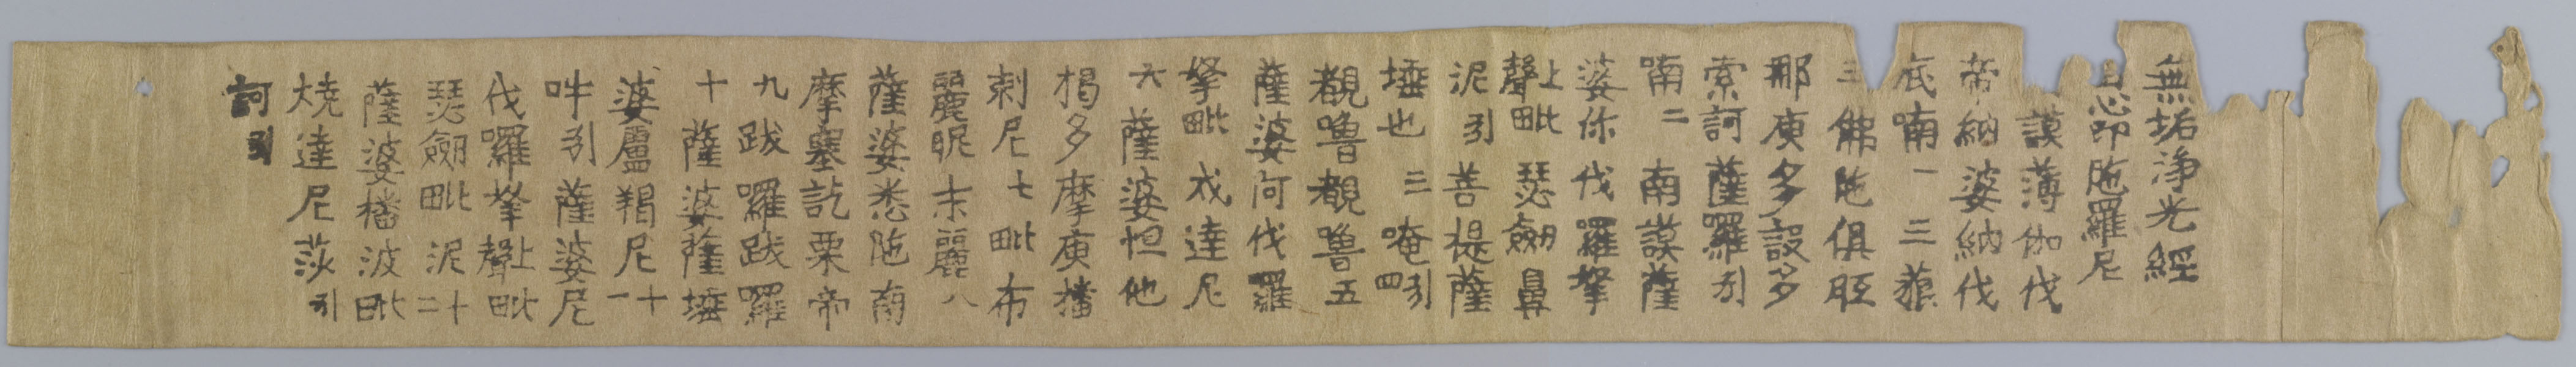 無垢浄光經
自心印陁羅尼
謨薄伽伐
帝納婆納伐
底喃一三藐
三佛陁俱胝
那庾多設多
索訶薩羅引
喃二南謨薩
婆你伐羅拏
上聲毗瑟劒鼻
泥引菩提薩
埵也三唵引四
覩嚕覩嚕五
薩婆阿伐羅
拏毗戍達尼
六薩婆怛他
揭多摩庾播
剌尼七毗布
麗昵末麗八
薩婆悉陁南
摩塞訖栗帝
九跋囉跋囉
十薩婆薩埵
婆盧羯尼十一
吽引薩婆尼
伐囉拏上聲毗
瑟劒毗泥十二
薩婆播波毗
燒達尼莎引
訶引